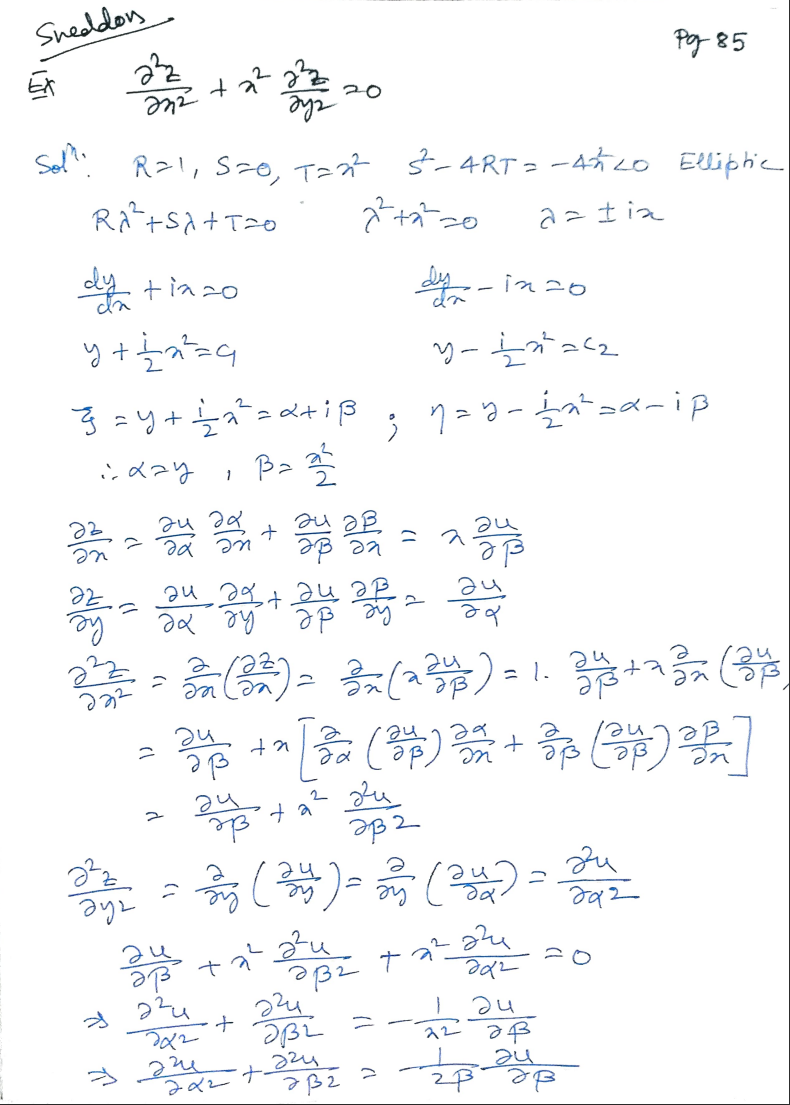 Sneddon
Pg 85
Ex ∂²z/∂x² + x² ∂²z/∂y² = 0
Solⁿ: R=1, S=0, T=x² S²-4RT = -4x²<0 Elliptic
Rλ²+Sλ+T=0 λ²+x²=0 λ = ± ix
dy/dx + ix=0 dy/dx - ix=0
y + i/2 x² = c₁ y - i/2 x² = c₂
ξ = y + i/2 x² = α+iβ ; η = y - i/2 x² = α-iβ
∴ α=y , β= x²/2
∂z/∂x = ∂u/∂α ∂α/∂x + ∂u/∂β ∂β/∂x = x ∂u/∂β
∂z/∂y = ∂u/∂α ∂α/∂y + ∂u/∂β ∂β/∂y = ∂u/∂α
∂²z/∂x² = ∂/∂x (∂z/∂x) = ∂/∂x (x ∂u/∂β) = 1. ∂u/∂β + x ∂/∂x (∂u/∂β)
= ∂u/∂β + x [∂/∂α (∂u/∂β) ∂α/∂x + ∂/∂β (∂u/∂β) ∂β/∂x]
= ∂u/∂β + x² ∂²u/∂β²
∂²z/∂y² = ∂/∂y (∂u/∂y) = ∂/∂y (∂u/∂α) = ∂²u/∂α²
∂u/∂β + x² ∂²u/∂β² + x² ∂²u/∂α² = 0
⇒ ∂²u/∂α² + ∂²u/∂β² = - 1/x² ∂u/∂β
⇒ ∂²u/∂α² + ∂²u/∂β² = - 1/2β ∂u/∂β